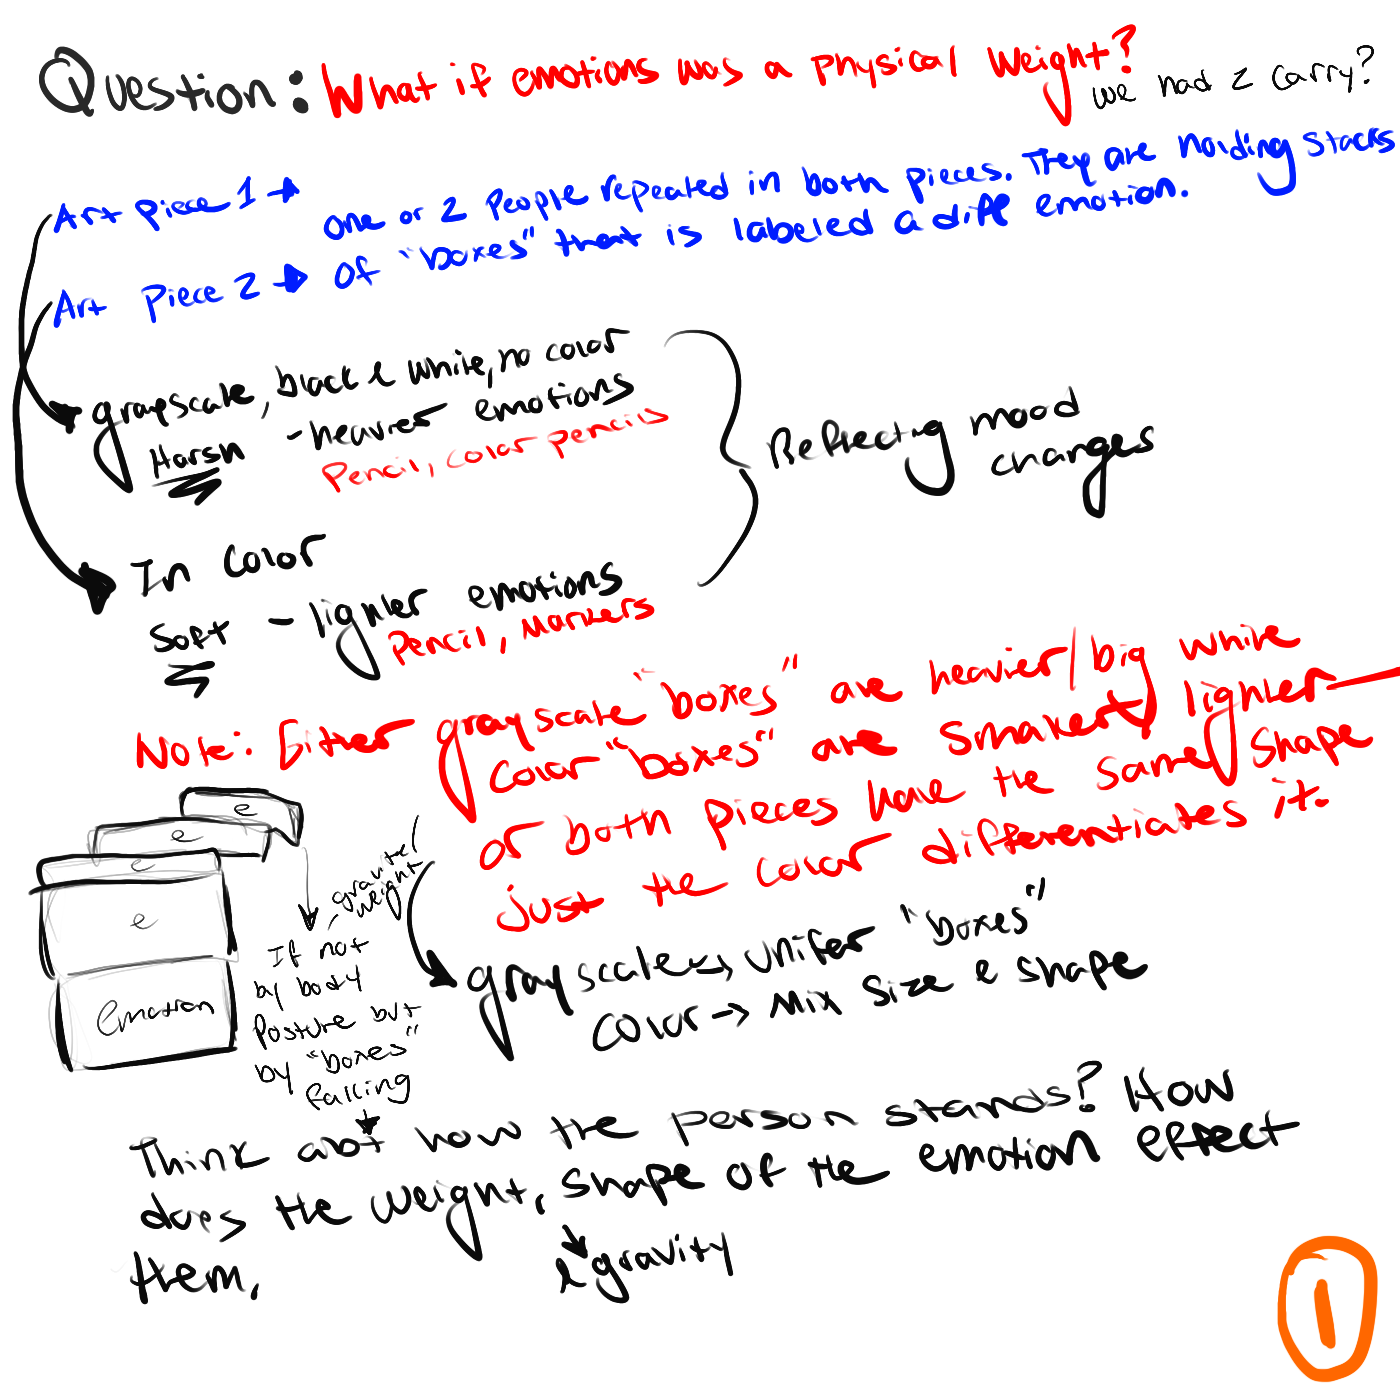 Question: What if emotions was a physical weight?
we had 2 carry?
Art piece 1 →
one or 2 People repeated in both pieces. They are holding stacks
Art Piece 2 → Of "boxes" that is labeled a diff emotion.
grayscale, black & white, no color
Harsh - heavier emotions
Pencil, color pencils
Reflecting mood
changes
In Color
Soft - lighter emotions
Pencil, Markers
Note: Either grayscale "boxes" are heavier/big while
color "boxes" are smaller, lighter
or both pieces have the same shape
just the color differentiates it.
e
e
e
e
emotion
gravity/
weight
If not
by body
Posture but
by "boxes"
falling
grayscale → unifer "boxes"
Color → Mix Size & shape
Think abt how the person stands? How
does the weight, shape of the emotion effect
them.
& gravity
1